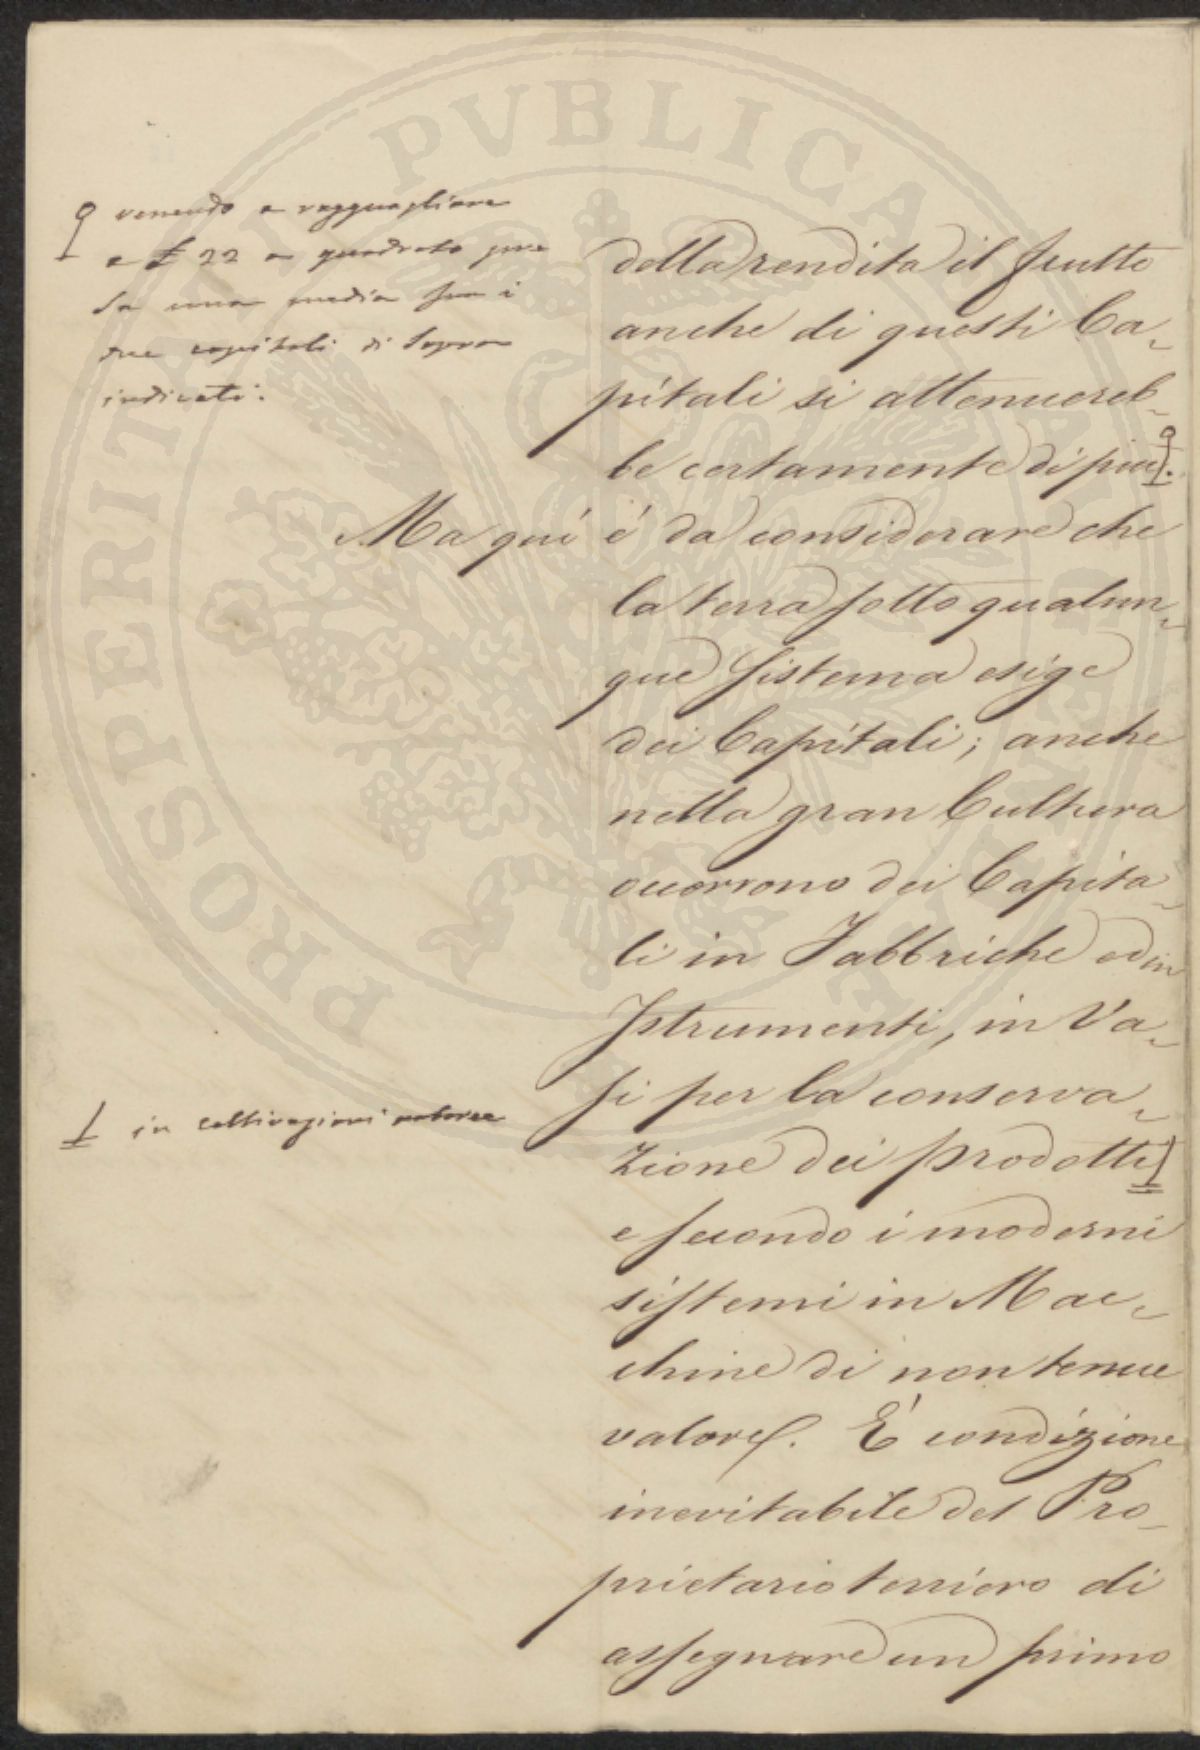 venendo a ragguagliare
a £ 22 a quadrato pre
sa una media fra i
due capitali di Sopra
indicati.
della rendita il frutto
anche di questi Ca-
pitali si attenuereb-
be certamente di piu.
Ma qui é da considerare che
la terra sotto qualun-
que sistema esige
dei Capitali; anche
nella gran Cultura
occorrono dei Capita-
li in Fabbriche ed in
Istrumenti, in Va-
si per la conserva-
zione dei prodotti
in coltivazioni
e secondo i moderni
sistemi in Mac-
chine di non tenue
valore. É condizione
inevitabile del Pro-
prietario terriero di
assegnare un primo
PROSPERITATI PVBLICAE AVGENDAE